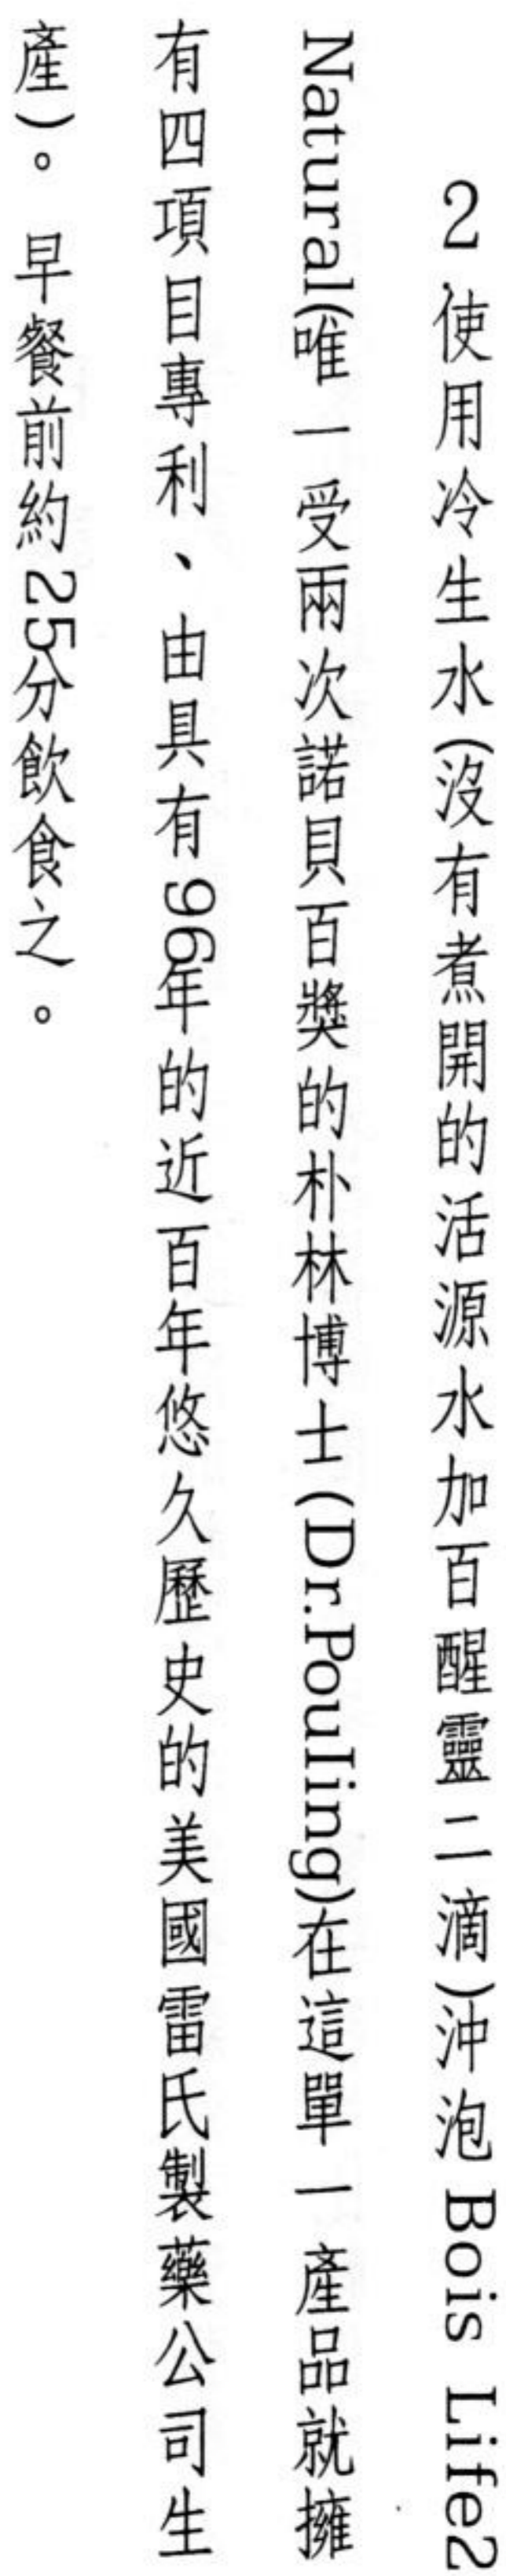 2使用冷生水(沒有煮開的活源水加百醒靈二滴)沖泡 Bois Life2
Natural(唯一受兩次諾貝百獎的朴林博士(Dr.Pouling)在這單一產品就擁
有四項目專利、由具有96年的近百年悠久歷史的美國雷氏製藥公司生
產)。早餐前約25分飲食之。